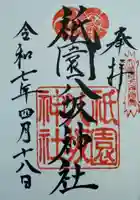 奉拝
祇園八坂神社
祇園
神社
令和七年四月十八日